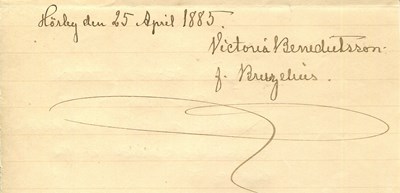 Hörby den 25 April 1885.
Victoria Benedictsson.
f. Bruzelius.